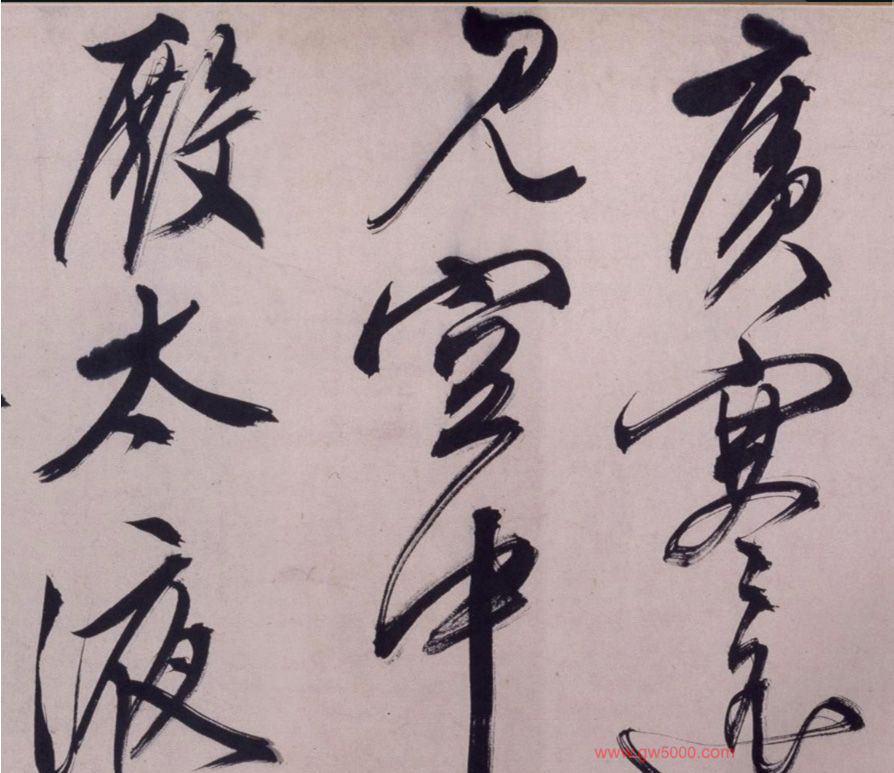 廣寒遙
見空中
殿太液
www.gw5000.com